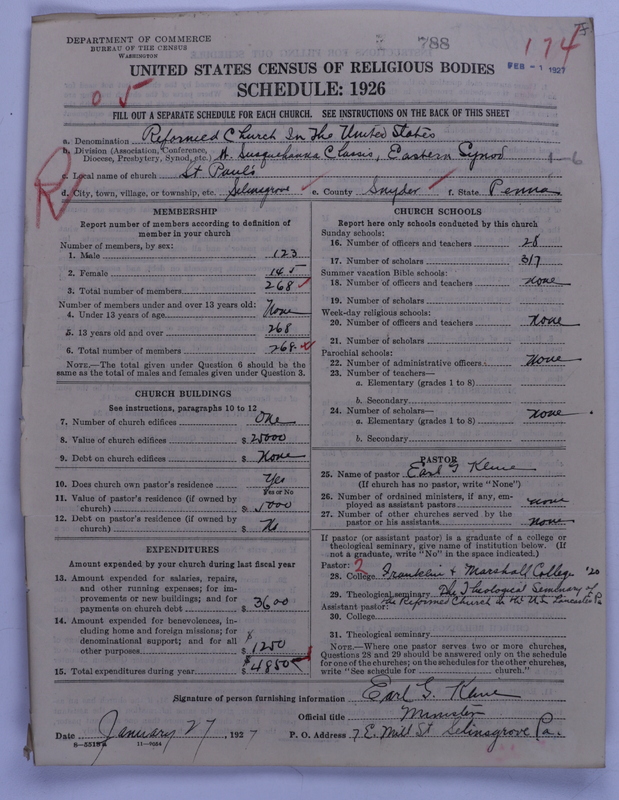 788
174
FEB -1 1927
DEPARTMENT OF COMMERCE
BUREAU OF THE CENSUS
WASHINGTON
UNITED STATES CENSUS OF RELIGIOUS BODIES
SCHEDULE: 1926
05
FILL OUT A SEPARATE SCHEDULE FOR EACH CHURCH. SEE INSTRUCTIONS ON THE BACK OF THIS SHEET
a. Denomination Reformed Church In The United States
b. Division (Association, Conference, Diocese, Presbytery, Synod, etc.) W. Susquehanna Classis, Eastern Synod
c. Local name of church St Paul's
d. City, town, village, or township, etc. Selinsgrove e. County Snyder f. State Penna
MEMBERSHIP
Report number of members according to definition of
member in your church
Number of members, by sex:
1. Male 123
2. Female 145
3. Total number of members 268
Number of members under and over 13 years old:
4. Under 13 years of age None
5. 13 years old and over 268
6. Total number of members 268
NOTE.—The total given under Question 6 should be the
same as the total of males and females given under Question 3.
CHURCH BUILDINGS
See instructions, paragraphs 10 to 12
7. Number of church edifices One
8. Value of church edifices $ 25000
9. Debt on church edifices $ None
10. Does church own pastor's residence Yes
Yes or No
11. Value of pastor's residence (if owned by
church) $ 5000
12. Debt on pastor's residence (if owned by
church) $ No
EXPENDITURES
Amount expended by your church during last fiscal year
13. Amount expended for salaries, repairs,
and other running expenses; for im-
provements or new buildings; and for
payments on church debt $ 3600
14. Amount expended for benevolences, in-
cluding home and foreign missions; for
denominational support; and for all
other purposes $ 1250
15. Total expenditures during year $ 4850
CHURCH SCHOOLS
Report here only schools conducted by this church
Sunday schools:
16. Number of officers and teachers 28
17. Number of scholars 317
Summer vacation Bible schools:
18. Number of officers and teachers none
19. Number of scholars
Week-day religious schools:
20. Number of officers and teachers none
21. Number of scholars
Parochial schools:
22. Number of administrative officers none
23. Number of teachers—
a. Elementary (grades 1 to 8)
b. Secondary
24. Number of scholars— none
a. Elementary (grades 1 to 8)
b. Secondary
PASTOR
25. Name of pastor Earl G Kline
(If church has no pastor, write "None")
26. Number of ordained ministers, if any, em-
ployed as assistant pastors none
27. Number of other churches served by the
pastor or his assistants none
If pastor (or assistant pastor) is a graduate of a college or
theological seminary, give name of institution below. (If
not a graduate, write "No" in the space indicated.)
Pastor: 2
28. College Franklin & Marshall College '20
29. Theological seminary The Theological Seminary of
the Reformed Church in the U.S. Lancaster Pa
Assistant pastor:
30. College
31. Theological seminary
NOTE.—Where one pastor serves two or more churches,
Questions 28 and 29 should be answered only on the schedule
for one of the churches; on the schedules for the other churches,
write "See schedule for church."
Signature of person furnishing information Earl G. Kline
Official title Minister
Date January 27, 1927 P. O. Address 7 E. Mill St Selinsgrove Pa.
11-9064